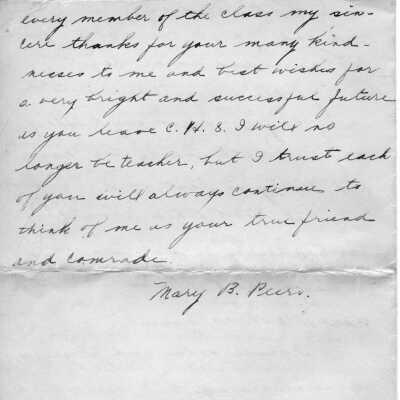 every member of the class my sin-
cere thanks for your many kind-
nesses to me and best wishes for
a very bright and successful future
as you leave C. H. S. I will no
longer be teacher, but I trust each
of you will always continue to
think of me as your true friend
and comrade
Mary B. Peers.